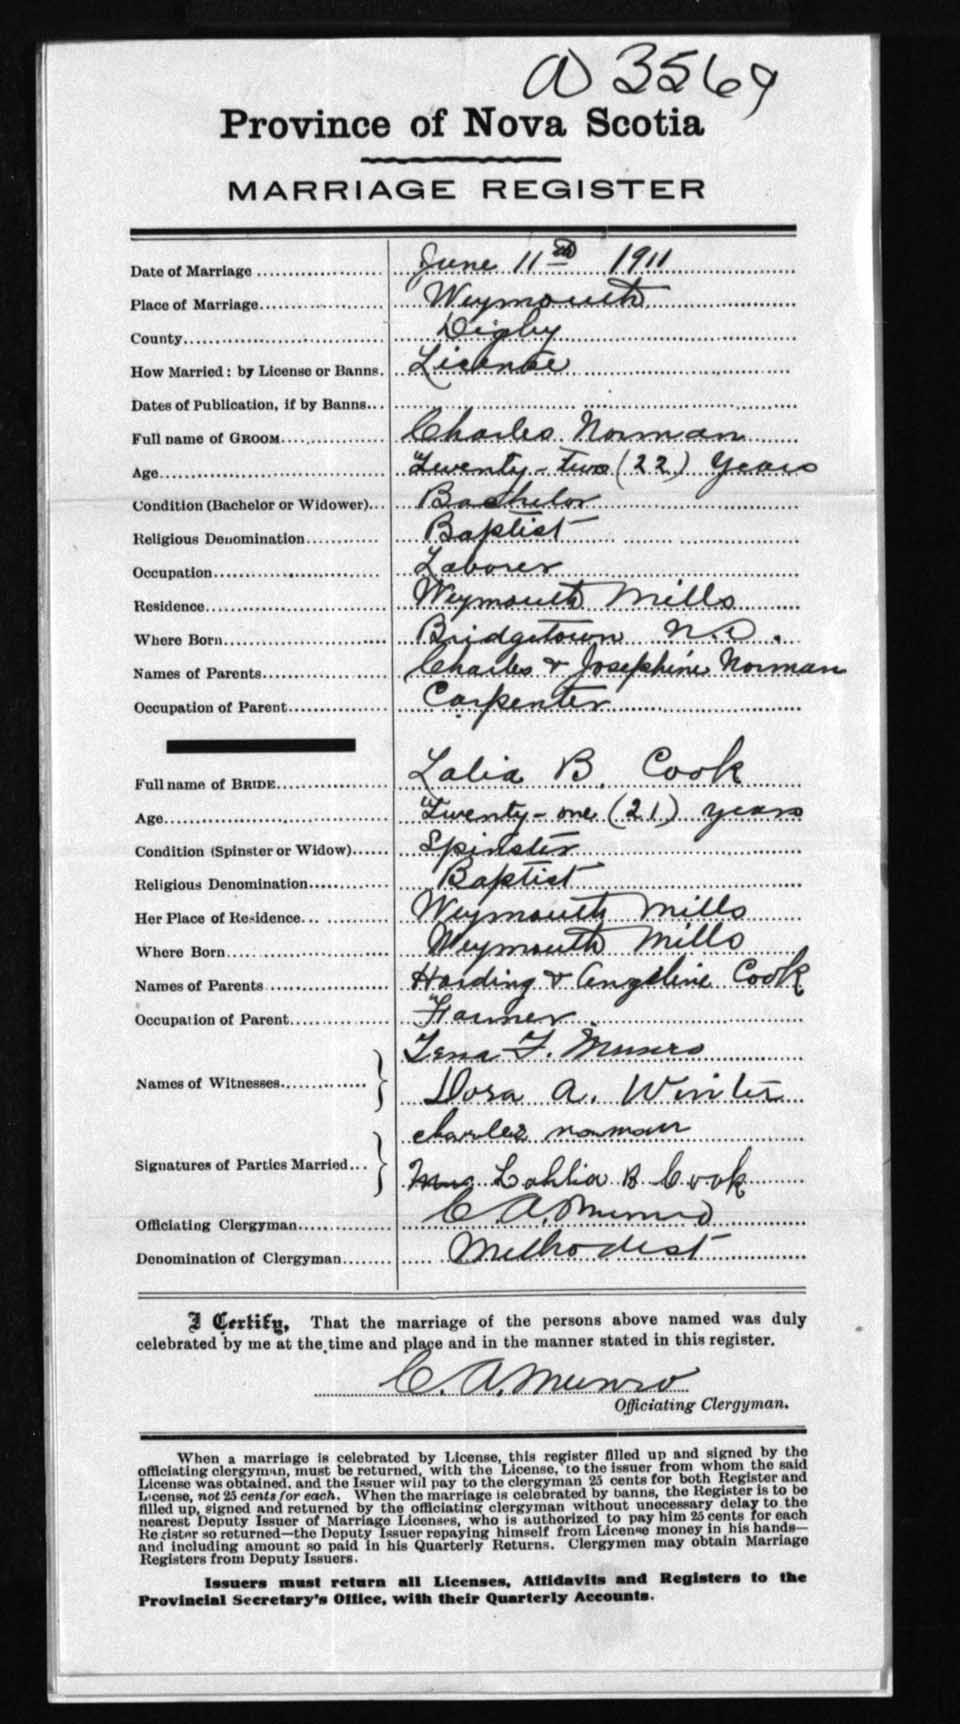 A 3569
Province of Nova Scotia
MARRIAGE REGISTER
Date of Marriage June 11th 1911
Place of Marriage Weymouth
County Digby
How Married: by License or Banns. License
Dates of Publication, if by Banns
Full name of GROOM Charles Norman
Age Twenty-two (22) years
Condition (Bachelor or Widower) Bachelor
Religious Denomination Baptist
Occupation Laborer
Residence Weymouth Mills
Where Born Bridgetown N.S.
Names of Parents Charles & Josephine Norman
Occupation of Parent Carpenter
Full name of BRIDE Lalia B. Cook
Age Twenty-one (21) years
Condition (Spinster or Widow) Spinster
Religious Denomination Baptist
Her Place of Residence Weymouth Mills
Where Born Weymouth Mills
Names of Parents Harding & Angeline Cook
Occupation of Parent Farmer
Lena F. Munro
Names of Witnesses
Dora A. Winter
charles norman
Signatures of Parties Married
Lahlia B Cook
Officiating Clergyman C. A. Munro
Denomination of Clergyman Methodist
I Certify, That the marriage of the persons above named was duly
celebrated by me at the time and place and in the manner stated in this register.
C. A. Munro
Officiating Clergyman.
When a marriage is celebrated by License, this register filled up and signed by the
officiating clergyman, must be returned, with the License, to the issuer from whom the said
License was obtained, and the Issuer will pay to the clergyman 25 cents for both Register and
License, not 25 cents for each. When the marriage is celebrated by banns, the Register is to be
filled up, signed and returned by the officiating clergyman without unecessary delay to the
nearest Deputy Issuer of Marriage Licenses, who is authorized to pay him 25 cents for each
Register so returned—the Deputy Issuer repaying himself from License money in his hands—
and including amount so paid in his Quarterly Returns. Clergymen may obtain Marriage
Registers from Deputy Issuers.
Issuers must return all Licenses, Affidavits and Registers to the
Provincial Secretary's Office, with their Quarterly Accounts.